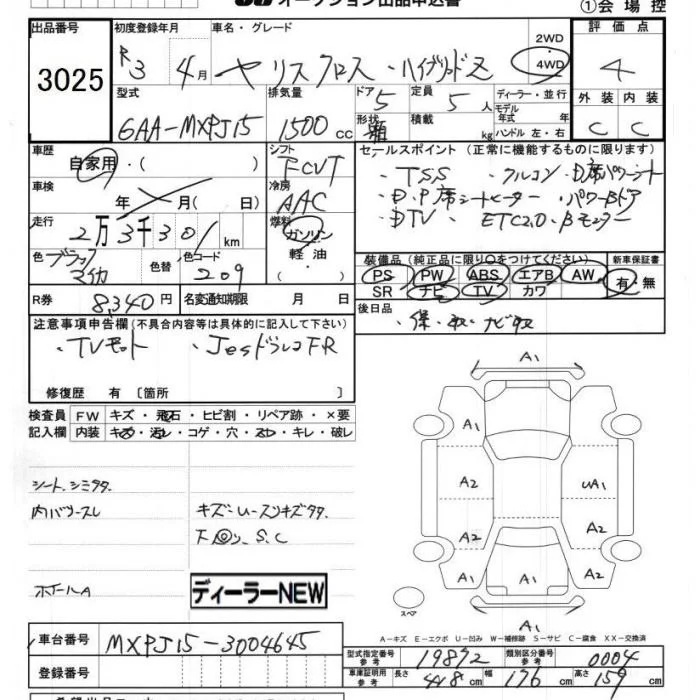 オークション出品申込書
①会場控
出品番号 3025
初度登録年月 R3 4月
車名・グレード ヤリスクロス・ハイブリッドZ
2WD
4WD
評価点 4
外装 内装
C C
型式 6AA-MXPJ15
排気量 1500cc
ドア 5
定員 5人
形状 箱
積載 kg
ディーラー・並行
モデル年式 年
ハンドル 左・右
車歴 自家用・( )
シフト FCVT
車検 年 月( 日)
冷房 AAC
走行 2万3千301km
燃料 ガソリン
軽油
・( )
色 ブラックマイカ
色替
色コード 209
R券 8,340円
名変通知期限 月 日
セールスポイント (正常に機能するものに限ります)
・TSS ・クルコン ・D席パワーシート
・D.P席シートヒーター ・パワーBドア
・DTV ・ETC2.0・Bモニター
装備品 (純正品に限り○をつけてください)
新車保証書
PS PW ABS エアB AW
有・無
SR ナビ TV カワ
後日品 ・保・取・ナビ
注意事項申告欄(不具合内容等は具体的に記入して下さい)
・TVキット ・ドラレコFR
修復歴 有 〔箇所 〕
検査員記入欄
FW キズ・飛石・ヒビ割・リペア跡・×要
内装 キズ・汚レ・コゲ・穴・スレ・キレ・破レ
シート、シミ
内ハリスレ
キズ・Uースリキズ
S.C
ホイールA
ディーラーNEW
A1
A1
A1
A2
UA1
A2
A2
A1
A1
A2
A1
スペア
A-キズ E-エクボ U-凹み W-補修跡 S-サビ C-腐食 XX-交換済
車台番号 MXPJ15-3004645
登録番号
型式指定番号 参考 19872
類別区分番号 参考 0004
車庫証明用 参考 長さ 418cm 幅 176cm 高さ 159cm